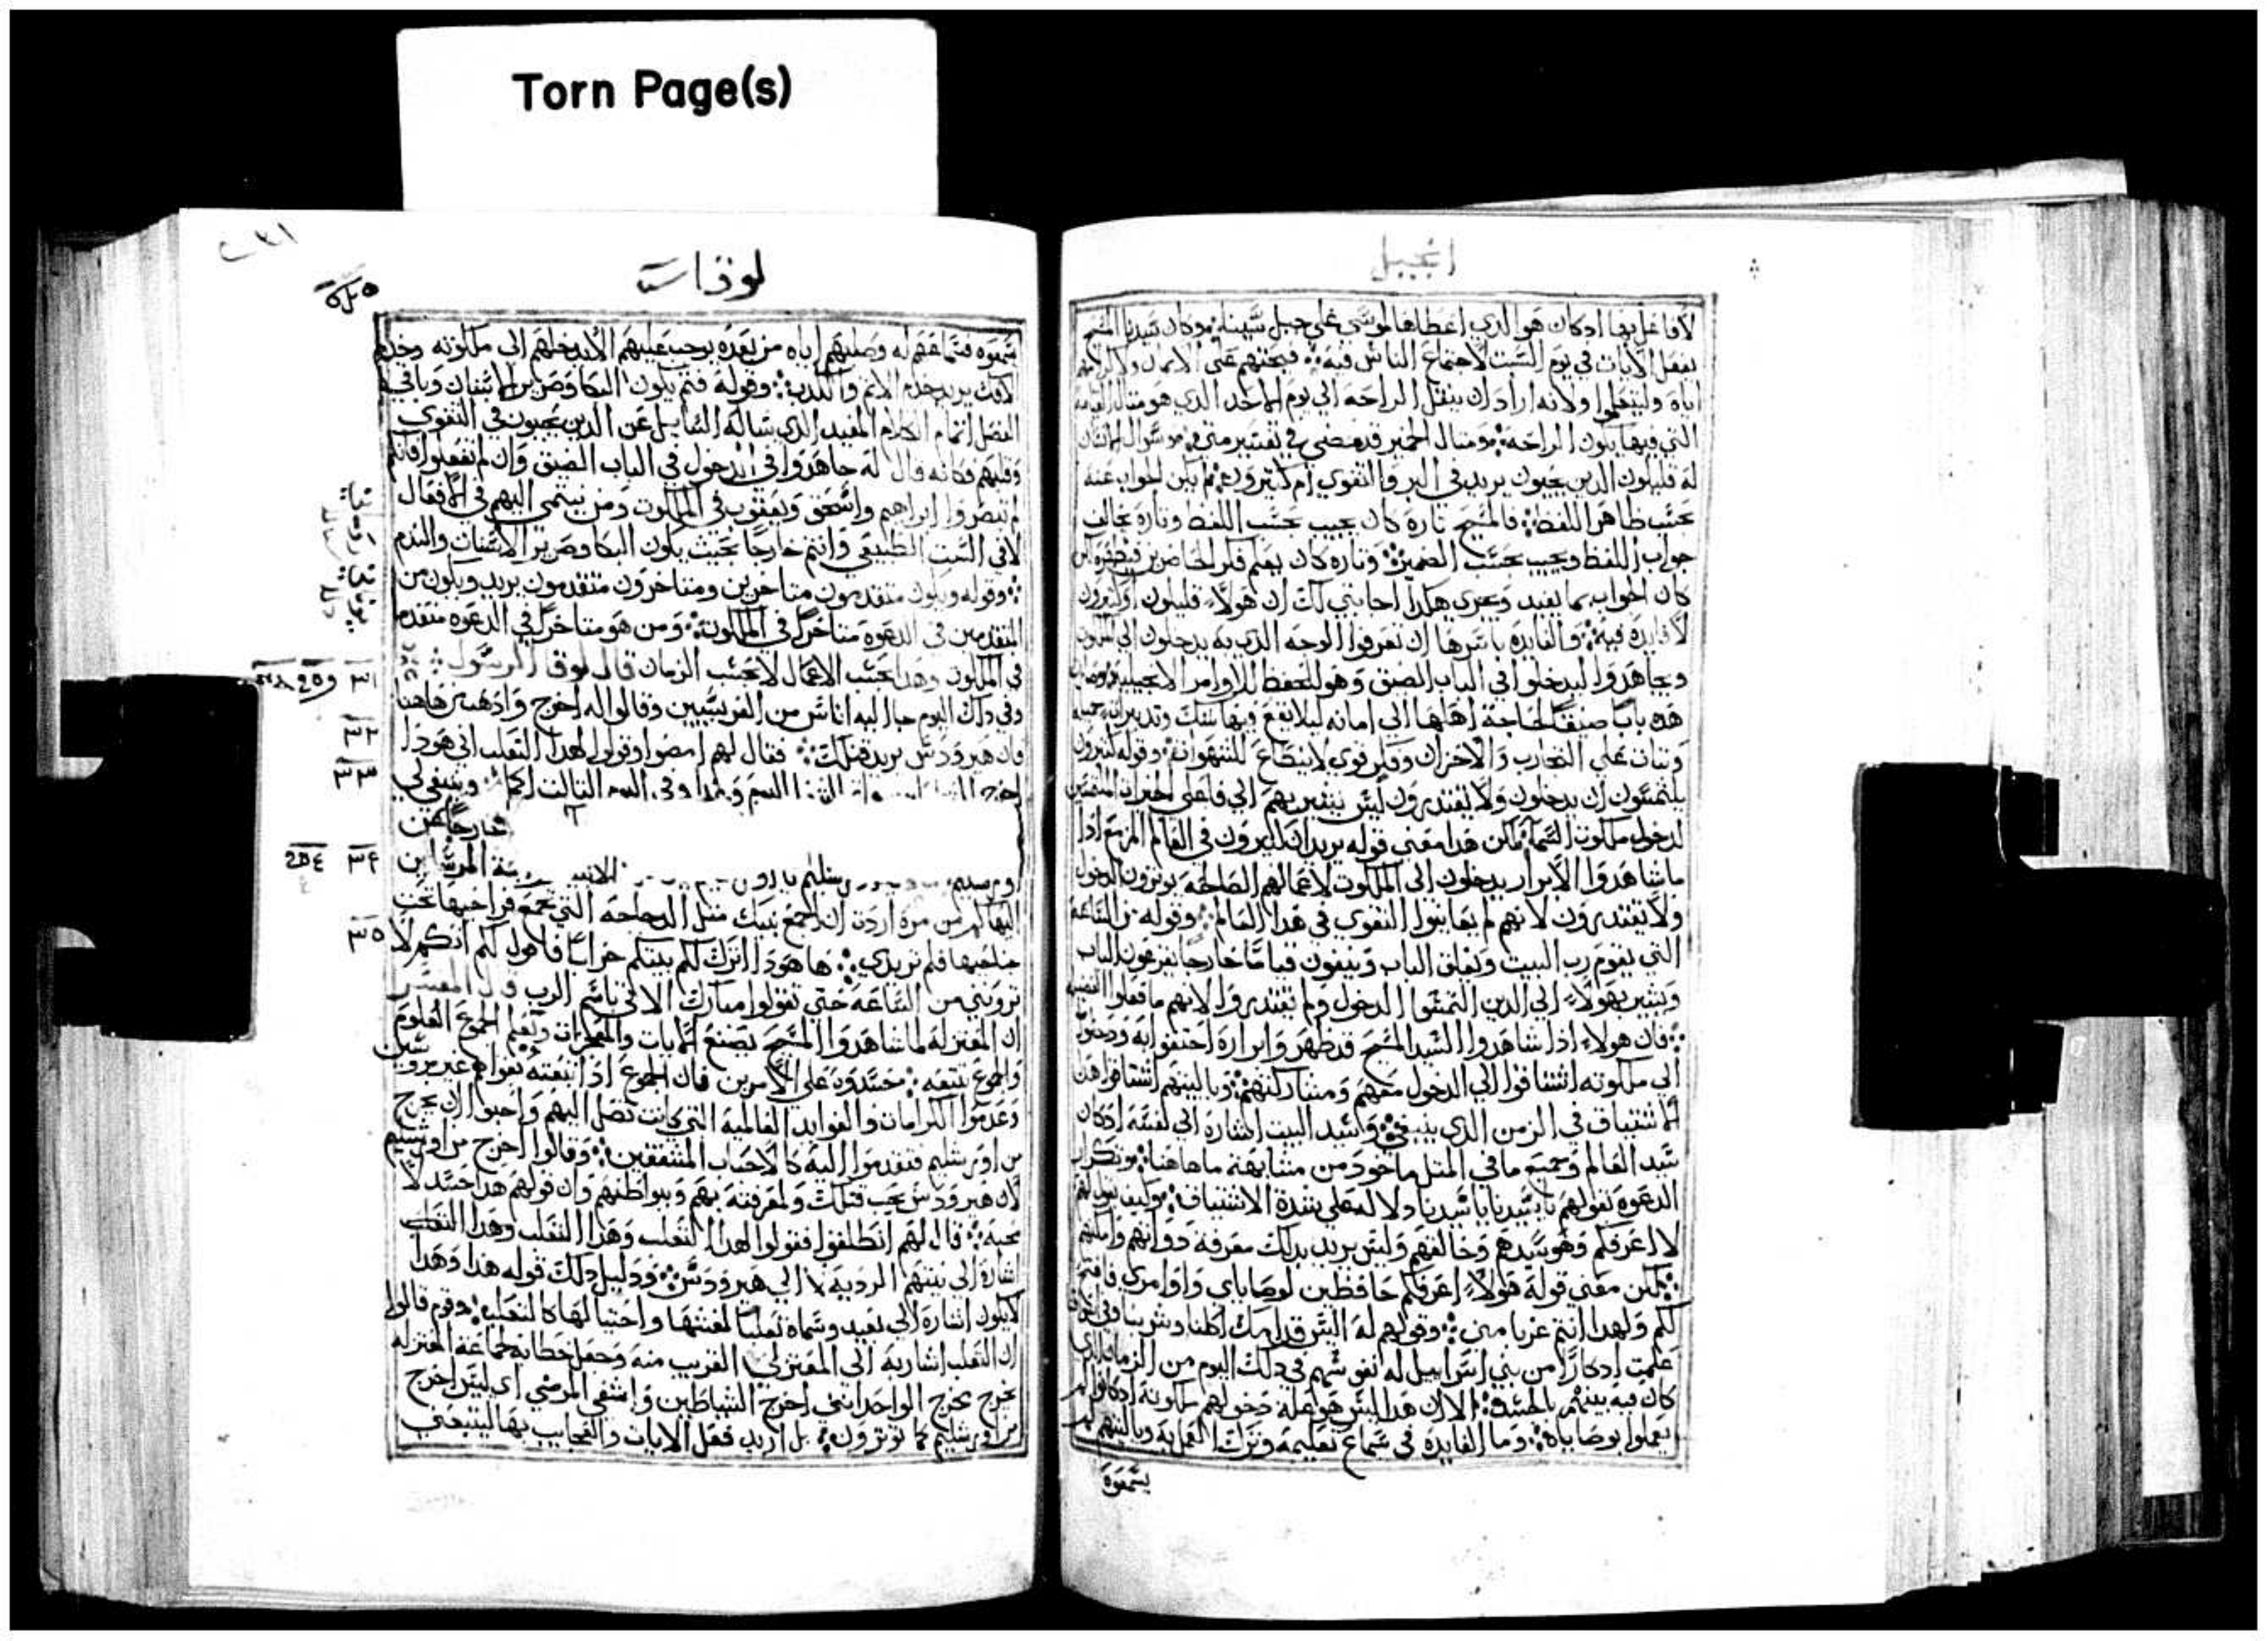 Torn Page(s)
انجيل
لافاعل بها اذ كان هو الذي اعطاها لموسى على جبل سينا وكان سيدنا المسيح
يفعل الايات في يوم السبت لاجتماع الناس فيه فيحثهم على الايمان
اياه وليتعلموا ولانه اراد ان ينقل الراحة الي يوم الاحد الذي هو مثال القيامة
التي فيها يكون الراحة ومثال الخمير قد مضى في تفسير متى
له قليلون الذين يحيون يريد في البر والتقوي ام كثيرون لم يكن الجواب عنه
بحسب ظاهر اللفظ فالمسيح تارة كان يجيب بحسب اللفظ وتارة يخالف
جواب اللفظ ويجيب بحسب الضمير وتاره كان يعلم فكر الحاضرين
كان الجواب بما يفيد ويجري هكذا اجابتي لك ان هولاء قليلون او كثيرون
لا فايدة فيه والفايدة باسرها ان تعرفوا الوجه الذي به يدخلون الي الملكوت
ويجاهدوا ليدخلوا في الباب الضيق وهو التحفظ للاوامر الانجيلية
هذه بابا ضيقا لحاجة اهلها الي امانه ليلا يقع فيها شك وتدبير
وثبات علي التجارب والاحزان وقلب قوي لا ينصاع للشهوات وقوله كثيرون
يلتمسون ان يدخلون ولا يقتدرون ليس يشير بهم الي فاعلى الخيرات
لدخول ملكوت السما لكن هذا معنى قوله يريد ان كثيرون في العالم المزمع اذا
ما شاهدوا الابرار يدخلون الى الملكوت لاعمالهم الصالحة يوثرون الدخول
ولا يقتدرون لانهم لم يعاينوا التقوي في هذا العالم وقوله من الساعة
التي يقوم رب البيت ويغلق الباب وتبقون قياما خارجا تقرعون الباب
ويشير بهولاء الى الذين التمسوا الدخول ولم يقتدروا لانهم ما فعلوا
فان هولاء اذا شاهدوا السيد المسيح قد ظهر وابراره احتفوا به ودخلوا
الي ملكوته اشتاقوا الي الدخول معهم ومشاركتهم وياليتهم اشتاقوا هذا
الاشتياق في الزمن الذي ينبغي واسيد البيت اشارة الي نفسه اذ كان
سيد العالم وجميع ما في المثل ماخوذ من مشابهة ما هاهنا وتكرار
الدعوة بقولهم يا سيدنا يا سيدنا دلالة على شدة الاشتياق وكيف يقول لهم
لا اعرفكم وهو سيدهم وخالقهم وليس يريد بذلك معرفة ذواتهم
لكن معني قوله هولاء اعرفكم حافظين لوصاياي واوامري فافتح
لكم ولهذا انتم غربا مني وقولهم له اليس قدامك اكلنا وشربنا وفي
علمت اذ كان من بني اسراييل له نفوسهم في ذلك اليوم من الزمان الذي
كان فيه بينهم بالجسد الا ان هذا ليس هو علة دخولهم ملكوته
يعملوا بوصاياه وما الفايدة في سماع تعليمه وترك العمل به وياليتهم لم
يسمعوه
لوقا
يسمعوه فسماعهم له وصلبهم اياه من بعده يوجب عليهم الا يدخلهم الى ملكوته
الافك يريد خدام الاثم والكذب وقوله فثم يكون البكا وصرير الاسنان وباقي
الفصل اتمام الكلام المفيد الذي ساله السايل عن الذين يحيون في التقوي
وقلتهم فكانه قال له جاهدوا في الدخول في الباب الضيق وان لم تفعلوا فانكم
لم تبصروا ابراهيم واسحق ويعقوب في الملكوت ومن ينتمي اليهم في الافعال
لا في السبت الطبيعي وانتم خارجا بحيث يكون البكا وصرير الاسنان والندم
وقوله ويكون متقدمون متاخرين ومتاخرون متقدمون يريد ويكون من
المتقدمين في الدعوة متاخرا في الملكوت ومن هو متاخرا في الدعوه متقدما
في الملكوت وهذا بحسب الاعمال لا بحسب الزمان قال لوقا الرسول
٣١
وفي ذلك اليوم جا اليه اناس من الفريسيين وقالوا له اخرج واذهب من هاهنا
فان هيرودس يريد قتلك فقال لهم امضوا وقولوا لهذا الثعلب اني هوذا
٣٢
اخرج اليوم وغدا وفي اليوم الثالث اكمل وينبغي لي
٣٣
خارجا عن
المرسلين
٣٤
اليها كم من مرة اردت ان اجمع بنيك مثل الدجاجة التي تجمع فراخها تحت
جناحيها فلم تريدي ها هوذا اترك لكم بيتكم خرابا فاقول لكم انكم لا
٣٥
تروني من الساعة حتى تقولوا مبارك الاتي باسم الرب قال المفسر
ان المعتزلة لما شاهدوا المسيح يصنع الايات والمعجزات ويعلم الجموع العلوم
والجموع تتبعه حسدوه علي الامرين فان الجموع اذا تبعته بقوا هم غير مروسين
وعدموا الكرامات والفوايد العالمية التي كانت تصل اليهم واحبوا ان يخرج
من اورشليم فتقدموا اليه كالاحباب المشفقين وقالوا اخرج من اورشليم
لان هيرودس يحب قتلك ولمعرفته بهم وببواطنهم وان قولهم هذا حسدا لا
محبة قال لهم انطلقوا فقولوا لهذا الثعلب وهذا الثعلب وهذا الثعلب
اشارة الى نيتهم الردية لا الي هيرودس ودليل ذلك قوله هذا وهذا
لا يكون اشارة الى بعيد وسماه ثعلبا لغشها واحتيالها كالثعلب وقوم قالوا
ان الثعلب اشار به الي المعتزلي القريب منه وجعل خطابه لجماعة المعتزله
يخرج مخرج الواحد انني اخرج الشياطين واشفي المرضي اي ليس اخرج
من اورشليم كما توثرون بل اريد فعل الايات والعجايب بها ليتبعني